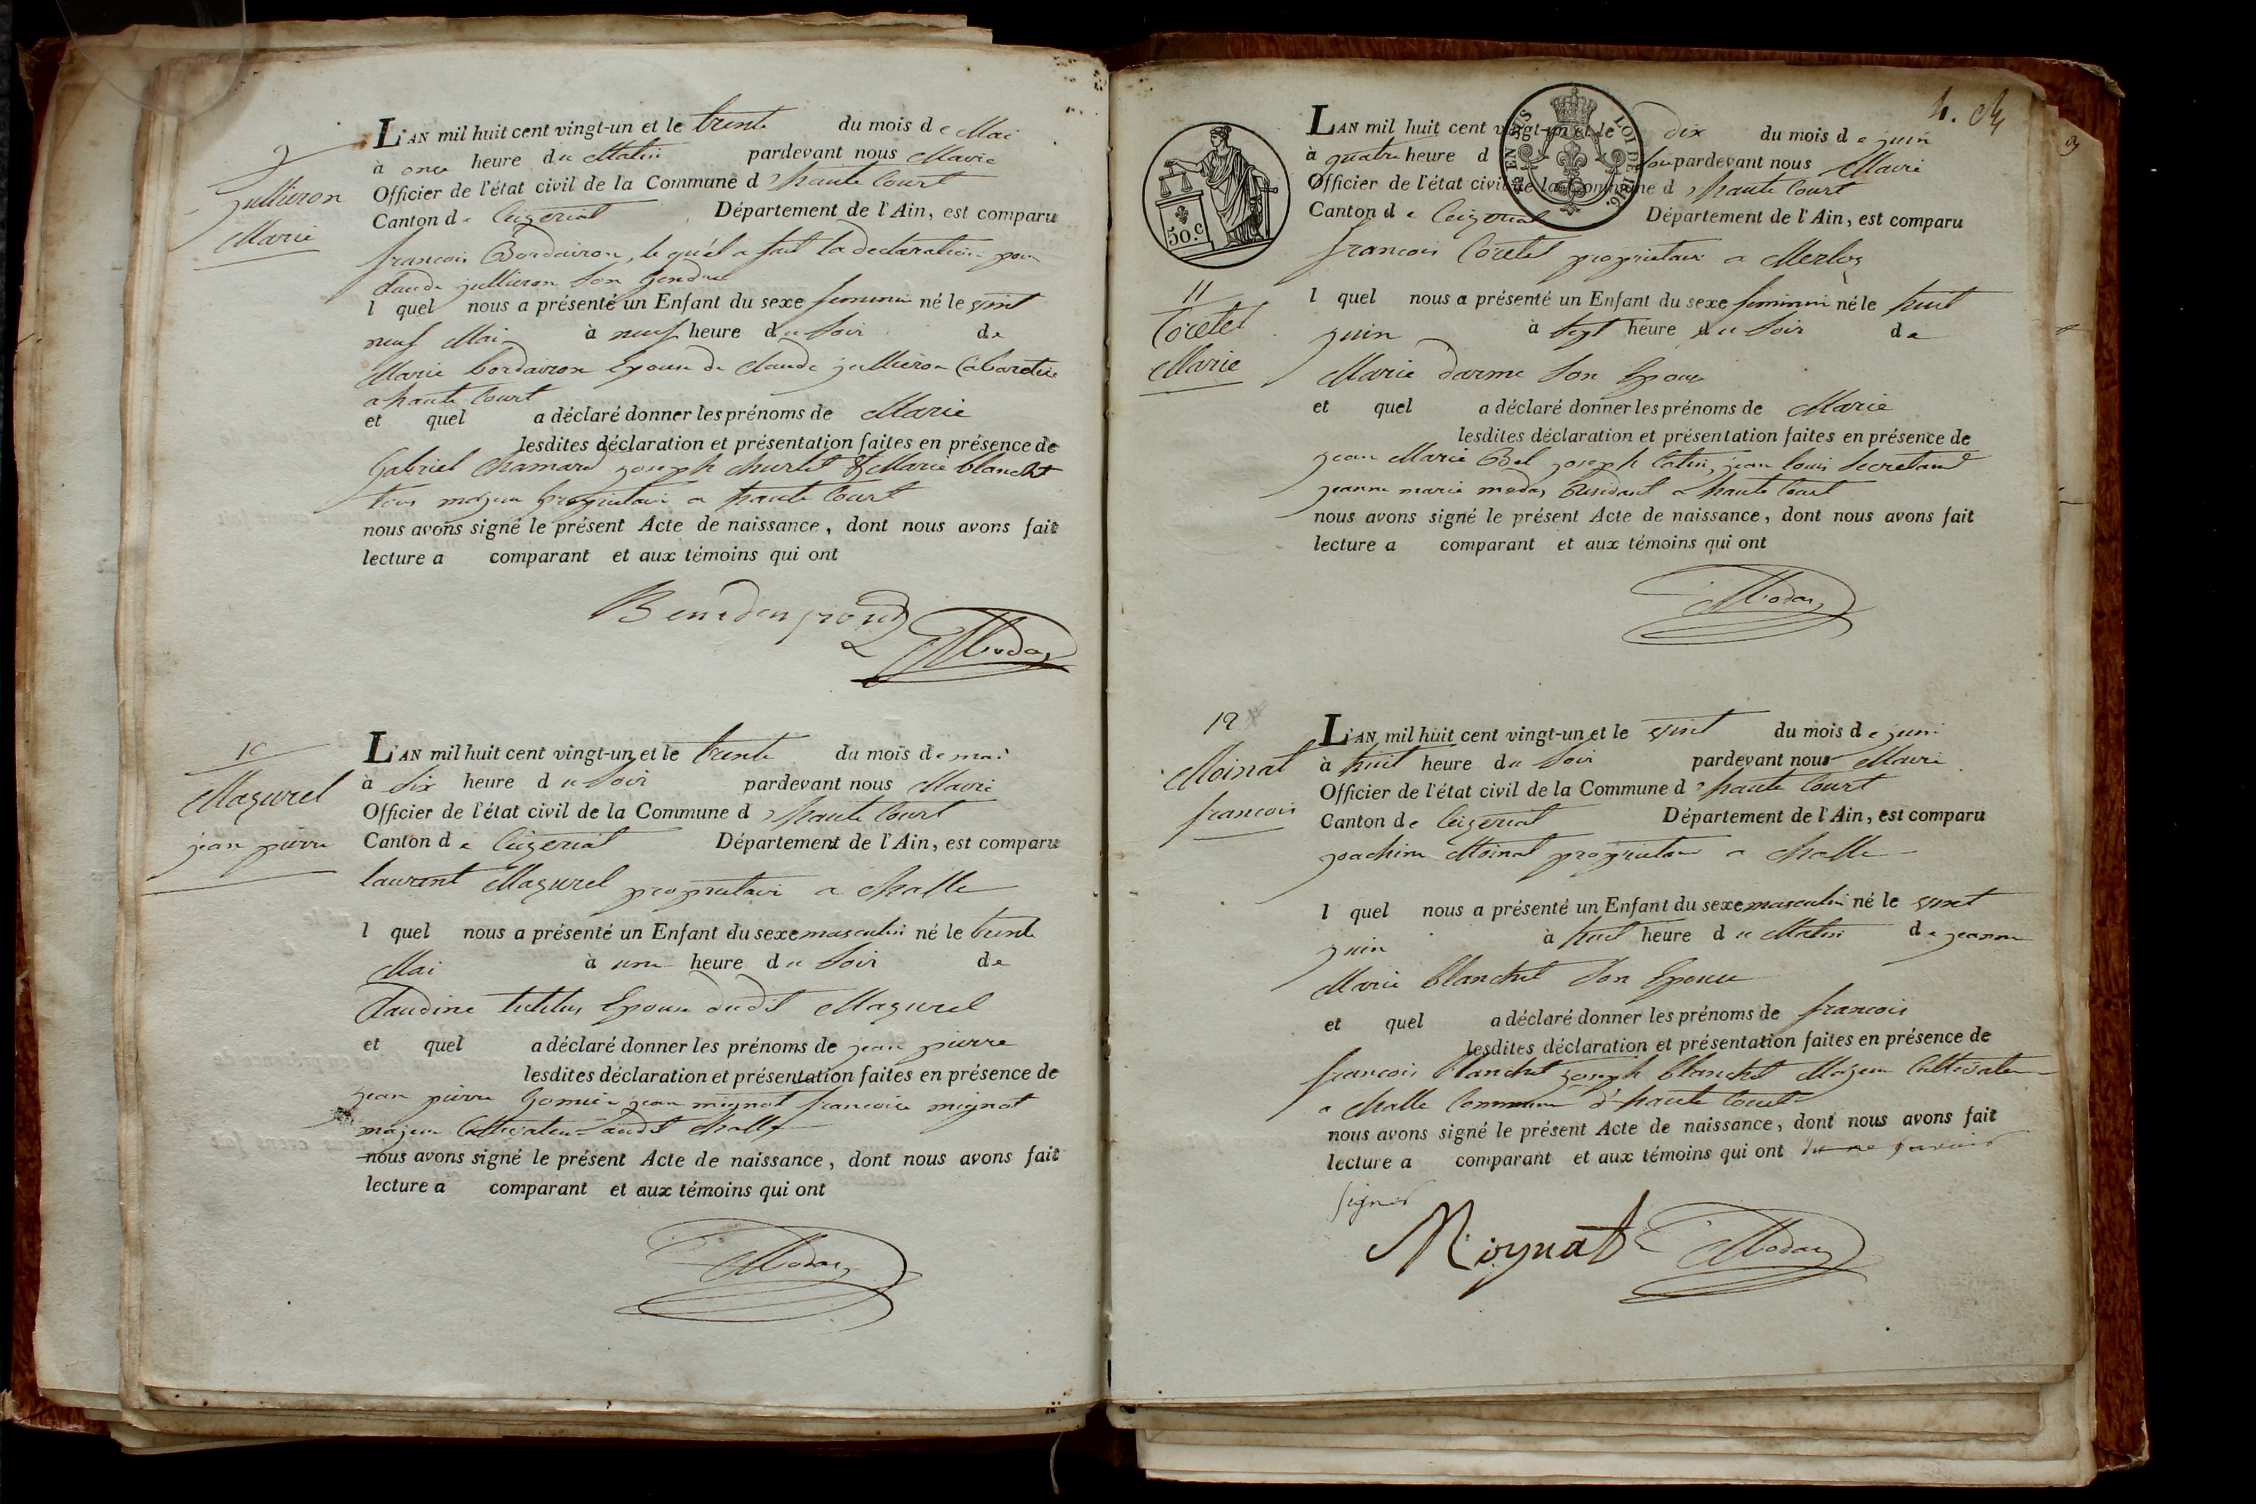 9
Jullieron
Marie
L'AN mil huit cent vingt-un et le trente du mois de Mai
à onze heure du Matin pardevant nous Maire
Officier de l'état civil de la Commune d'haute Court
Canton de Ceizeriat Département de l'Ain, est comparu
francois Bordairon, le quél a fait la declaration pour
Claude jullieron Son Gendre
l quel nous a présenté un Enfant du sexe feminin né le vint
neuf Mai à neuf heure du Soir de
Marie bordairon Epouse de Claude jullieron Cabaretier
a haute Court
et quel a déclaré donner les prénoms de Marie
lesdites déclaration et présentation faites en présence de
Gabriel Chamard joseph churlet & Marie blanchet
tous majeur proprietaire a haute Court
nous avons signé le présent Acte de naissance, dont nous avons fait
lecture a comparant et aux témoins qui ont
Moday
10
Mazurel
jean pierre
L'AN mil huit cent vingt-un et le trente du mois de mai
à Six heure du Soir pardevant nous Maire
Officier de l'état civil de la Commune d'haute Court
Canton de Ceizeriat Département de l'Ain, est comparu
laurent Mazurel proprietaire a challe
l quel nous a présenté un Enfant du sexe masculin né le trente
Mai à une heure du Soir de
Claudine Epouse dudit Mazurel
et quel a déclaré donner les prénoms de jean pierre
lesdites déclaration et présentation faites en présence de
jean pierre jean mignot francoise mignot
majeur Cultivateur audit challe
nous avons signé le présent Acte de naissance, dont nous avons fait
lecture a comparant et aux témoins qui ont
Moday
4.
50.c
TIMBRE EN SUS
LOI DE 1816.
11
Coretet
Marie
L'AN mil huit cent vingt-un et le dix du mois de juin
à quatre heure d Soir pardevant nous Maire
Officier de l'état civil de la Commune d'haute Court
Canton de Ceizeriat Département de l'Ain, est comparu
francois Coretet proprietaire a Merloz
l quel nous a présenté un Enfant du sexe feminin né le huit
juin à Sept heure du Soir de
Marie darme Son Epouse
et quel a déclaré donner les prénoms de Marie
lesdites déclaration et présentation faites en présence de
jean Marie Bel joseph Catin, jean louis Secretand
jeanne marie moday Residant a haute Court
nous avons signé le présent Acte de naissance, dont nous avons fait
lecture a comparant et aux témoins qui ont
Moday
12
Moinat
francois
L'AN mil huit cent vingt-un et le vint du mois de juin
à huit heure du Soir pardevant nous Maire
Officier de l'état civil de la Commune d'haute Court
Canton de Ceizeriat Département de l'Ain, est comparu
joachim Moinat proprietaire a challe
l quel nous a présenté un Enfant du sexe masculin né le vint
juin à huit heure du Matin de jeanne
Marie blanchet Son Epouse
et quel a déclaré donner les prénoms de francois
lesdites déclaration et présentation faites en présence de
francois blanchet joseph blanchet Majeur Cultivateur
a challe Commune d'haute Court
nous avons signé le présent Acte de naissance, dont nous avons fait
lecture a comparant et aux témoins qui ont dit ne savoir
signer
Moynat Moday